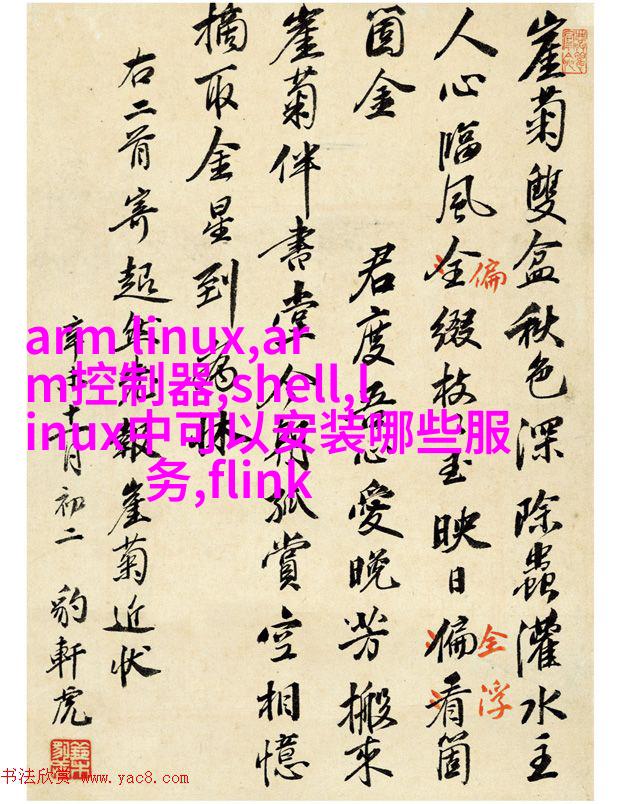 崖菊雙盆秋色深除蟲灌水主
人心臨風全綴枝〻玉映日偏看箇
偏
全
浮
箇金 君度吾愛晚芳搬來
崖菊伴書堂今朝孤賞空相憶
摘取金星到
右二首寄超然報崖菊近状
辛丑十月初二 豹軒虎
arm linux,ar
m控制器,shell,l
inux中可以安装哪些服
务,flink
书法欣赏 www.yac8.com